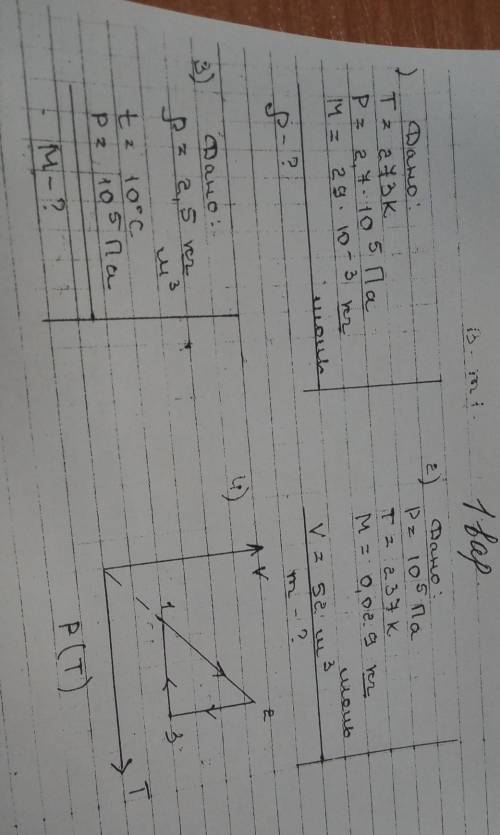 1 вар.
1) Дано:
T = 273К
P = 2,7 · 10⁵ Па
M = 29 · 10⁻³ кг
моль
ρ - ?
2) Дано:
P = 10⁵ Па
T = 237К
M = 0,029 кг
моль
V = 52 м³
m - ?
3) Дано:
ρ = 2,5 кг
м³
t = 10°C
P = 10⁵ Па
M - ?
4)
V
2
1
3
T
P(T)